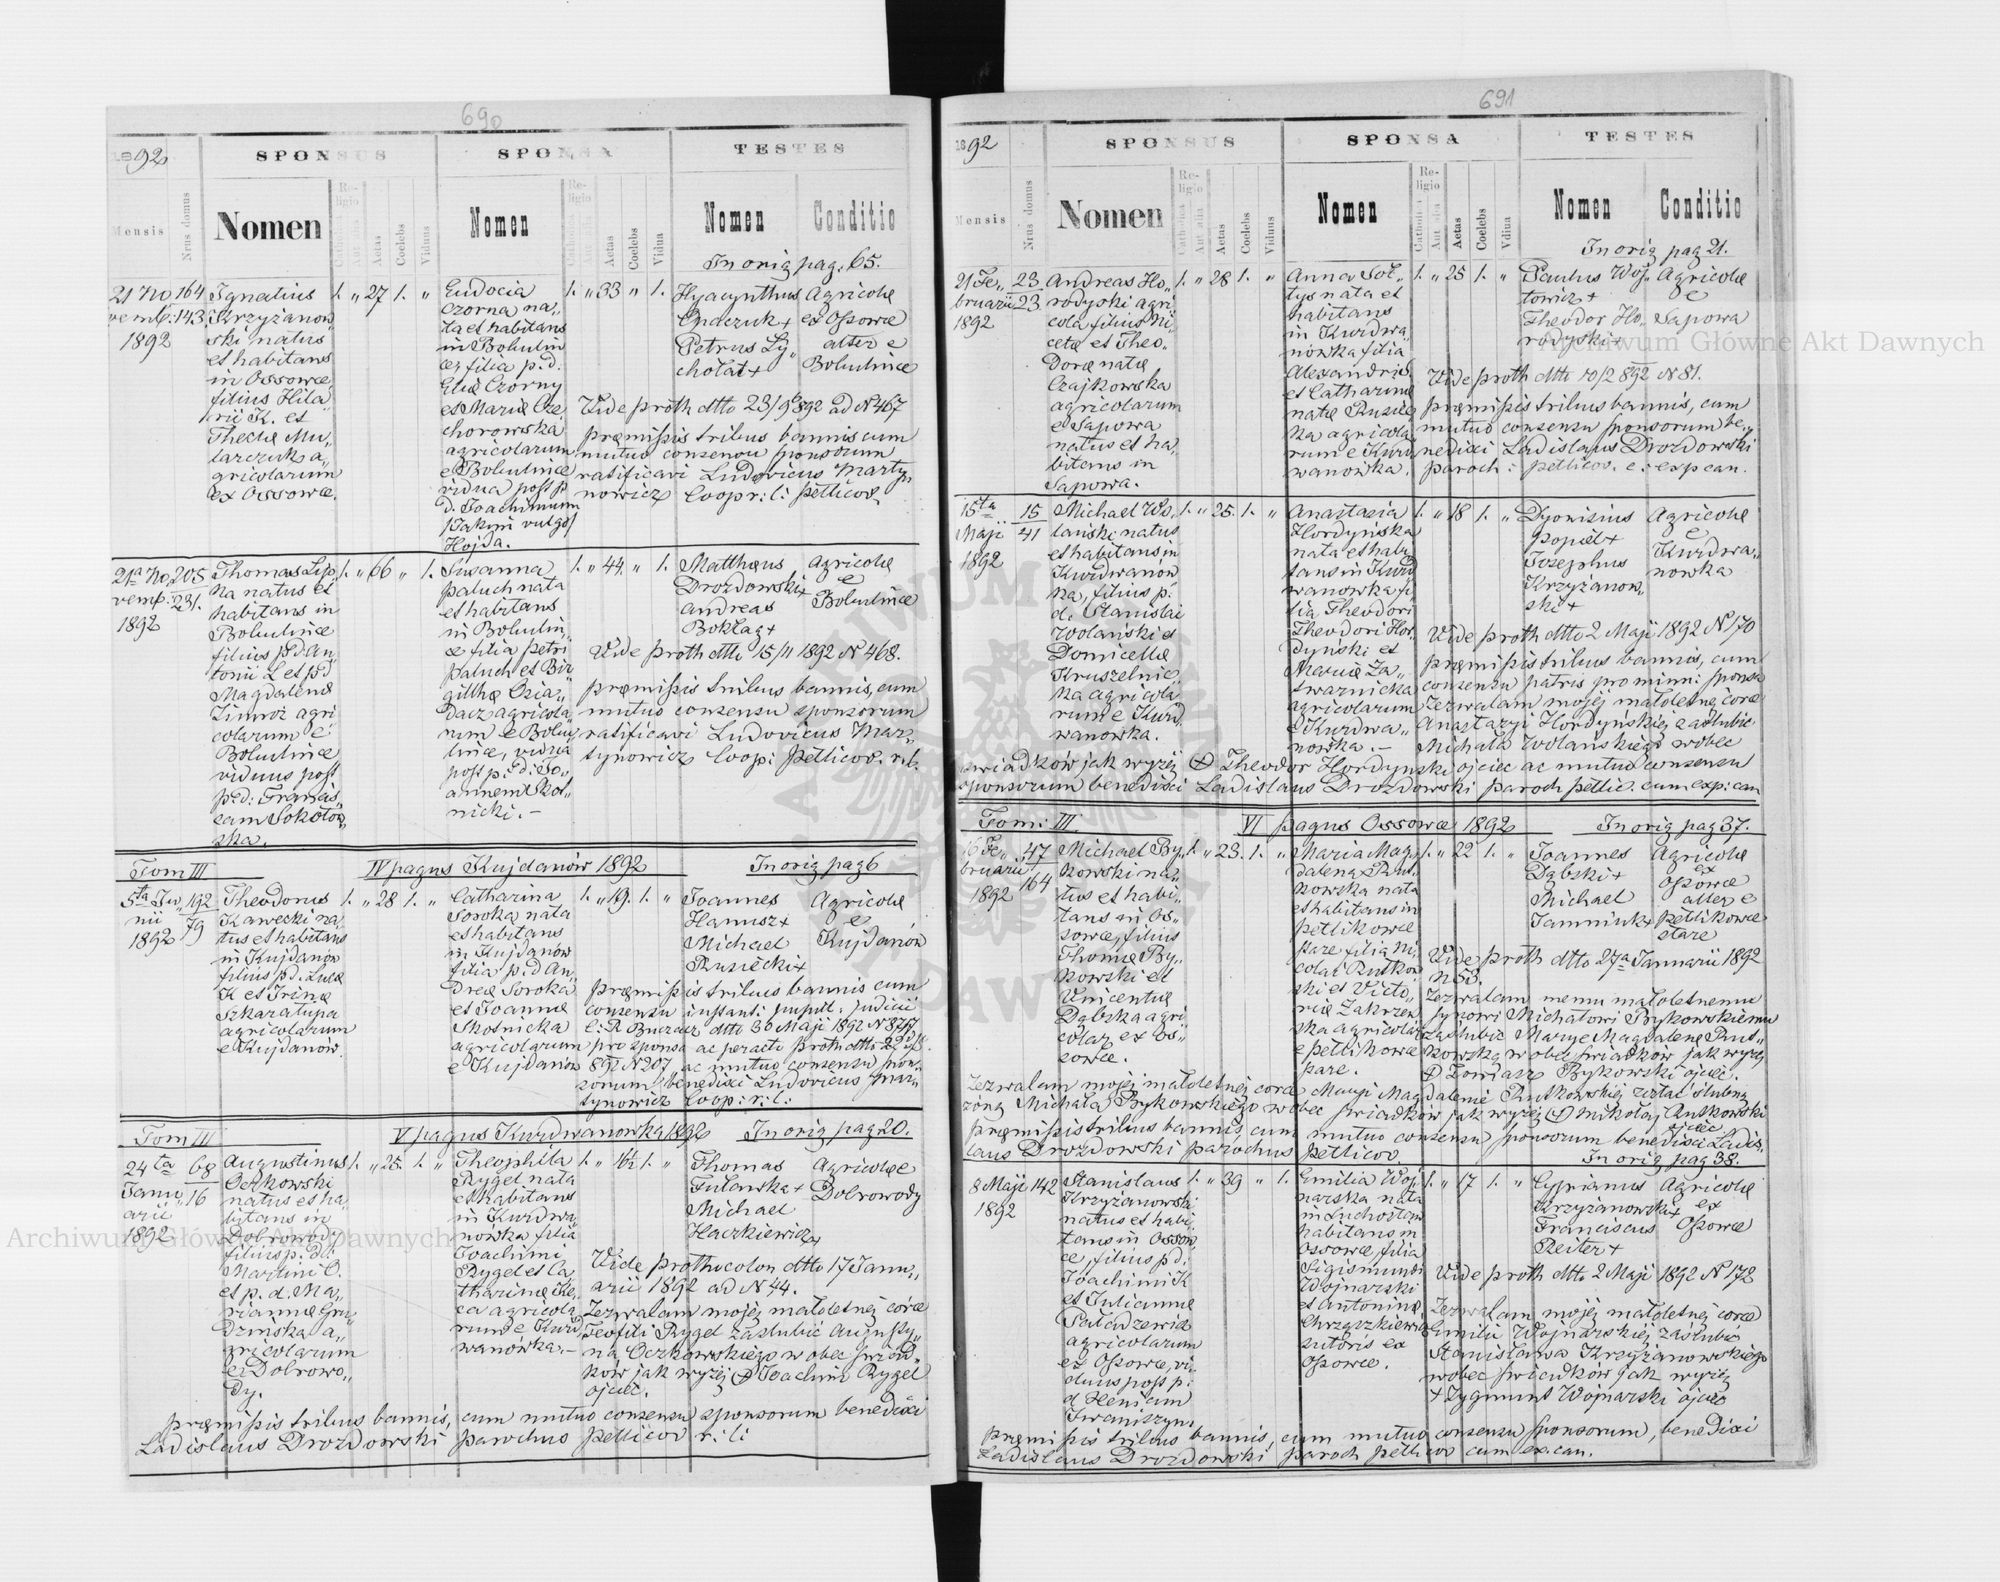 690
1892
SPONSUS
SPONSA
TESTES
Mensis
Nrus domus
Nomen
Religio
Catholica
Aut alia
Aetas
Coelebs
Viduus
Nomen
Religio
Catholica
Aut alia
Aetas
Coelebs
Vidua
Nomen
Conditio
In orig pag. 65.
21 No
vemb:
1892
164
143
Ignatius
Krzyżanow
ski natus
et habitans
in Ossowce
filius Hila
rii K. et
Theclæ Mu„
larczuk a„
gricolarum
ex Ossowce.
1. „ 27 1. „
Eudocia
Czorna na„
ta et habitans
in Bobulin
ce, filia p. d.
Eliæ Czorny
et Mariæ Cze
chorowska
agricolarum
e Bobulince
vidua post p.
d. Joachimum
/Jakim vulgo/
Hojda.
1. „ 33 „ 1.
Hyacynthus
Petrus Ly„
cholat +
Agricolæ
ex Ossowce
alter e
Bobulince
Vide proth dtto 23/9b 892 ad N 467
præmissis tribus bannis cum
mutuo consensu sponsorum
ratificavi Ludovicus Marty„
nowicz Coop r: l: petlicov.
21a No
vemb.
1892
205
231.
Thomas Lip
ka natus et
habitans in
Bobulince
filius p d An„
tonii L et p d
Magdalenæ
Zimroz agri
colarum e
Bobulince
viduus post
p: d: Francis„
cam Sokołow„
ska.
1. „ 66 „ 1.
Susanna
Paluch nata
et habitans
in Bobulin„
ce filia Petri
Paluch et Bir„
gitthæ Osia„
dacz agricola„
rum e Bobu„
lince, vidua
post p: d: Jo„
annem Skos„
nicki. –
1. „ 44. „ 1.
Matthæus
Drozdowski +
Andreas
Boklag +
Agricolæ
e
Bobulince
Vide proth dtto 15/11 1892 N 468.
præmissis tribus bannis, cum
mutuo consensu sponsorum
ratificavi Ludovicus Mar„
tynowicz Coop: petlicov. r. l.
Tom III
IV pagus Kujdanów 1892
In orig pag 6
5ta Ju„
nii
1892
192
79
Theodorus
Kawecki na„
tus et habitans
in Kujdanów
filius p d. Lucæ
K et Irinæ
Szkarałupa
agricolarum
e Kujdanów.
1. „ 28 1. „
Catharina
Soroka nata
et habitans
in Kujdanów
filia p. d An„
dreæ Soroka
et Joannæ
Skosnicka
agricolarum
e Kujdanów
1. „ 19. 1. „
Joannes
Hanusz +
Michael
Rusiecki +
Agricolæ
e
Kujdanów
præmissis tribus bannis cum
consensu pupill. judicii
C: R Buczacz dtto 30 Maji 1892 N 8717
pro sponsa ac peracto proth dtto 2d
892 N 207 ac mutuo consensu spon„
sorum benedixi Ludovicus Mar„
tynowicz Coop: r: l:
Tom III
V pagus Kurdwanowka 1892
In orig pag 20.
24ta
Janu„
arii
1892
68
16
Augustinus
Oczkowski
natus et ha„
bitans in
Dobrowody
filius p. d:
Martini O.
et p. d. Ma„
riannæ Gru„
dzinska a„
gricolarum
e Dobrowo„
dy.
1. „ 25. 1. „
Theophila
Rygel nata
et habitans
in Kurdwa„
nówka filia
Joachimi
Rygel et Ca„
tharinæ Ke„
ca agricola„
rum e Kurd
wanówka. –
1. „ 16½ 1. „
Thomas
Fularska +
Michael
Haczkiewicz +
Agricolæ e
Dobrowody
Vide prothocolon dtto 17 Janu„
arii 1892 ad N 44.
Zezwalam mojej małoletnej córce
Teofili Rygel zaslubić Augusty„
na Oczkowskiego wobec świad„
ków jak wyżej + Joachim Rygel
ojciec.
præmissis tribus bannis, cum mutuo consensu sponsorum benedixi
Ladislaus Drozdowski parochus petlicov r: l:
691
1892
SPONSUS
SPONSA
TESTES
Mensis
Nrus domus
Nomen
Religio
Catholica
Aut alia
Aetas
Coelebs
Viduus
Nomen
Religio
Catholica
Aut alia
Aetas
Coelebs
Vidua
Nomen
Conditio
In orig pag 21.
21 Fe„
bruarii
1892
23
23
Andreas Ho„
rodyski agri„
cola filius Ni„
cetæ et Theo„
doræ natæ
Czajkowska
agricolarum
e Sapowa
natus et ha„
bitans in
Sapowa.
1. „ 28 1. „
Anna Soł„
tys nata et
habitans
in Kurdwa„
nówka filia
Alexandri S
et Catharinæ
natæ Rusiec
ka agricola„
rum e Kurd
wanówka.
1. „ 25 1. „
Paulus Woj„
towicz +
Theodor Ho„
rodyski +
Agricolæ
e
Sapowa
Vide proth dtto 10/2 892 N 81.
præmissis tribus bannis, cum
mutuo consensu sponsorum be„
nedixi Ladislaus Drozdowski
paroch: petlicov. c: exp can.
15ta
Maji
1892
15
41
Michael Wo„
lański natus
et habitans in
Kurdwanów
ka, filius p:
d. Stanislai
Wolański et
Domicellæ
Kruszelnic„
ka agricola
rum e Kurd„
wanówka.
1. „ 25. 1. „
Anastasia
Hordyńska
nata et habi
tans in Kurd
wanówka fi
lia Theodori
Theodori Hor„
dyński et
Mariæ Za„
twarnicka
agricolarum
e Kurdwa„
nówka. –
1. „ 18 1. „
Dyonisius
Popiel +
Josephus
Krzyżanow„
ski +
Agricolæ
e
Kurdwa„
nowka
Vide proth dtto 2 Maji 1892 N 170
præmissis tribus bannis, cum
consensu patris pro minn: sponsa
Zezwalam mojej małoletnej córce
Anastazyi Hordyńskiej zaślubic
Michała Wolańskiego wobec
świadków jak wyżej + Theodor Hordynski ojciec ac mutuo consensu
sponsorum benedixi Ladislaus Drozdowski paroch petlic. cum exp: can
Tom: III
VI pagus Ossowce 1892
In orig pag 37.
16 Fe„
bruarii
1892
47
164
Michael By„
kowski na„
tus et habi„
tans in Os„
sowce, filius
Thomæ By„
kowski et
Vincentiæ
Dąbska agri„
colar ex Os„
sowce.
1. „ 23. 1. „
Maria Mag„
dalena Rut„
kowska nata
et habitans in
Petlikowce
stare filia Ni„
colai Rutkow
ski et Victo„
riæ Zakrzew
ska agricola
e Petlikowce
stare.
1. „ 22 1. „
Joannes
Dąbski +
Michael
Jamniuk +
Agricolæ
ex
Ossowce
alter e
Petlikowce
stare
Vide proth dtto 27a Januarii 1892
N 53.
Zezwalam memu małoletnemu
synowi Michałowi Bykowskiemu
zaślubić Maryę Magdalenę Rut„
kowską wobec świadków jak wyżej
+ Tomasz Bykowski ojciec.
Zezwalam mojej małoletnej córce Maryi Magdalenie Rutkowskiej zostać ślubną
żoną Michała Bykowskiego wobec świadków jak wyżej + Mikołaj Rutkowski
ojciec
præmissis tribus bannis, cum mutuo consensu sponsorum benedixi Ladis„
laus Drozdowski parochus petlicov
In orig pag 38.
8 Maji
1892
142
Stanislaus
Krzyżanowski
natus et habi„
tans in Ossow„
ce, filius p d.
Joachimi K
et Julianna
Paładzewicz
agricolarum
ex Ossowce, vi„
duus post p.
d Heniam
Iwaniszyn.
1. „ 39 „ 1.
Emilia Woj„
narska nata
in Suchostaw
habitans in
Ossowce, filia
Sigismundi
Wojnarski
et Antoninæ
Chrząszkiewicz
sutoris ex
Ossowce.
1. „ 17 1. „
Cyprianus
Krzyżanowski +
Franciscus
Reiter +
Agricolæ
ex
Ossowce
Vide proth dtto 2 Maji 1892 N 172
Zezwalam mojej małoletnej córce
Emilii Wojnarskiej zaślubić
Stanisława Krzyżanowskiego
wobec świadków jak wyżej
+ Zygmunt Wojnarski ojciec
præmissis tribus bannis, cum mutuo consensu sponsorum, benedixi
Ladislaus Drozdowski paroch petlicov cum ex. can.
Archiwum Główne Akt Dawnych
Archiwum Główne Akt Dawnych